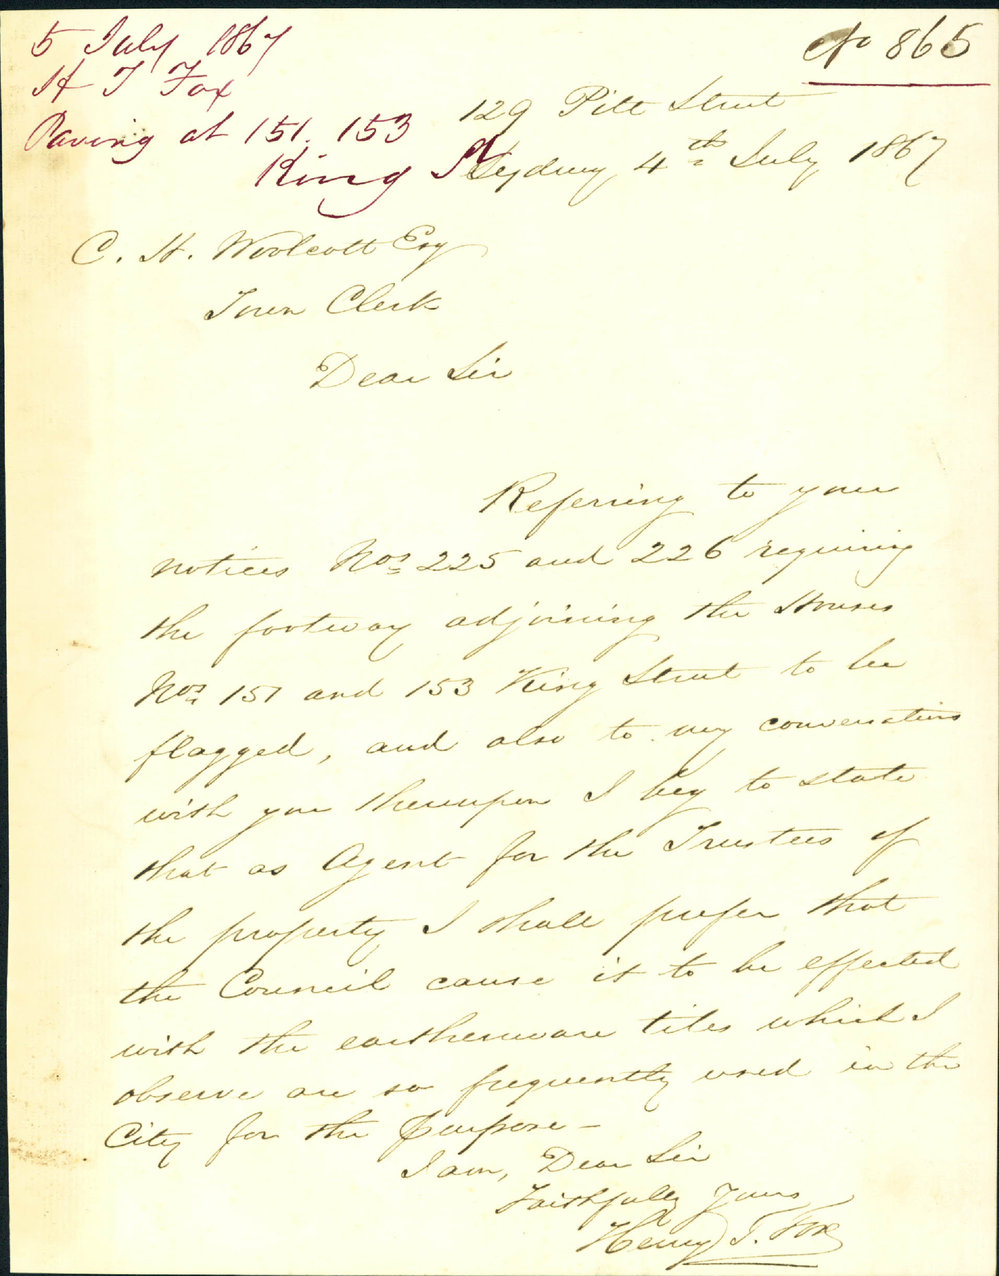 5 July 1867
H T Fox
Paving at 151. 153
King St
No 865
129 Pitt Street
Sydney 4th July 1867
C. H. Woolcott Esq
Town Clerk
Dear Sir
Referring to your
notices Nos 225 and 226 requiring
the footway adjoining the Houses
Nos 151 and 153 King Street to be
flagged, and also to my conversations
with you thereupon I beg to state
that as Agent for the Trustees of
the property I shall prefer that
the Council cause it to be effected
with the earthenware tiles which I
observe are so frequently used in the
City for the purpose –
I am, Dear Sir
Faithfully Yours
Henry T. Fox